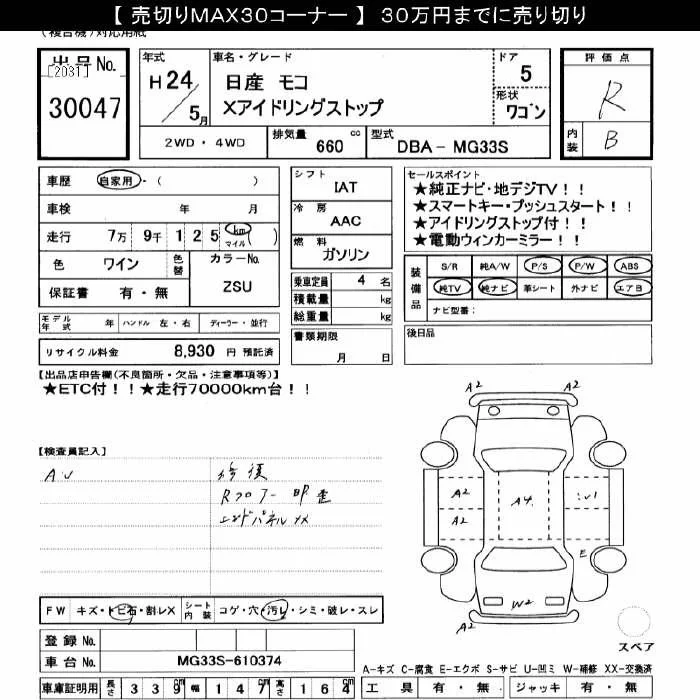 【 売切りMAX30コーナー 】 30万円までに売り切り
(複合機)対応用紙
出品No.
[2031]
30047
年式
H24/5月
車名・グレード
日産 モコ
Xアイドリングストップ
ドア
5
形状
ワゴン
評価点
R
内装
B
2WD・4WD
排気量
660 cc
型式
DBA- MG33S
車歴 自家用・( )
車検 年 月
走行 7万 9千 1 2 5 km マイル ( )
色 ワイン
色替
カラーNo.
ZSU
保証書 有・無
シフト
IAT
冷房
AAC
燃料
ガソリン
乗車定員 4 名
積載量 kg
総重量 kg
書類期限
月 日
セールスポイント
★純正ナビ・地デジTV!!
★スマートキー・プッシュスタート!!
★アイドリングストップ付!!
★電動ウィンカーミラー!!
装備品
S/R 純A/W P/S P/W ABS
純TV 純ナビ 革シート 外ナビ エアB
ナビ型番:
後日品
モデル年式 年 ハンドル 左・右 ディーラー・並行
リサイクル料金 8,930 円 預託済
【出品店申告欄(不良箇所・欠品・注意事項等)】
★ETC付!!★走行70000km台!!
【検査員記入】
AU
修復
Rフロアー 凹歪
エンドパネル XX
A2 A2
A2 A4 U1
A2
E
W2
A2
スペア
FW キズ・トビ石・割レX
シート内装 コゲ・穴・汚レ・シミ・破レ・スレ
登録 No.
車台 No. MG33S-610374
車庫証明用 長さ 3 3 9 cm 幅 1 4 7 cm 高さ 1 6 4 cm
A-キズ C-腐食 E-エクボ S-サビ U-凹ミ W-補修 XX-交換済
工具 有・無 ジャッキ 有・無